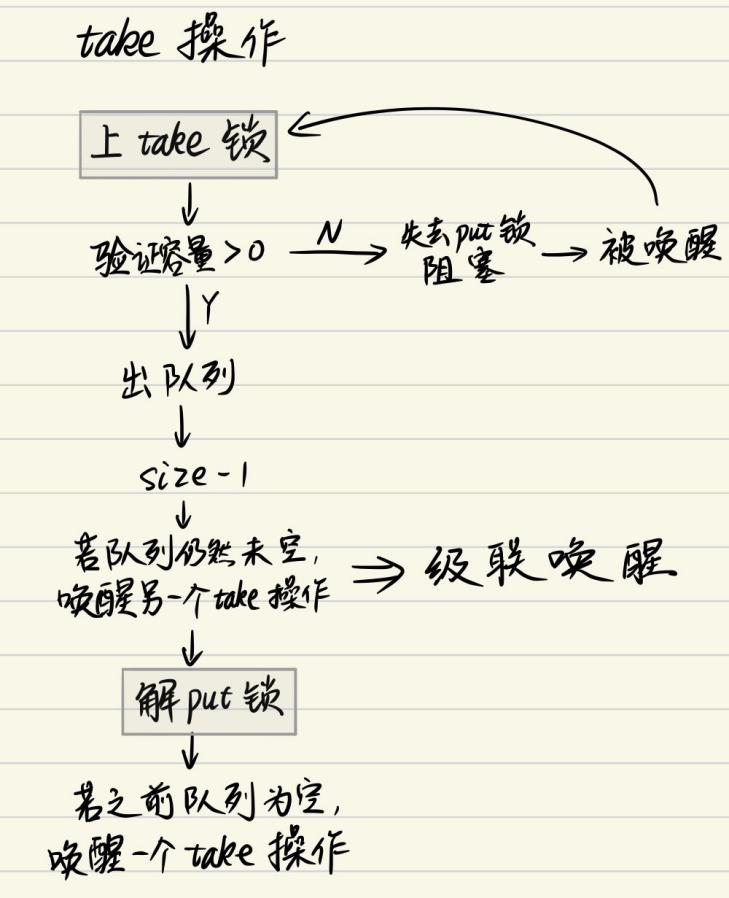 take 操作
上 take 锁
验证容量>0
N
失去put锁
阻塞
被唤醒
Y
出队列
size-1
若队列仍然未空,
唤醒另一个take操作
级联唤醒
解put锁
若之前队列为空,
唤醒一个take操作